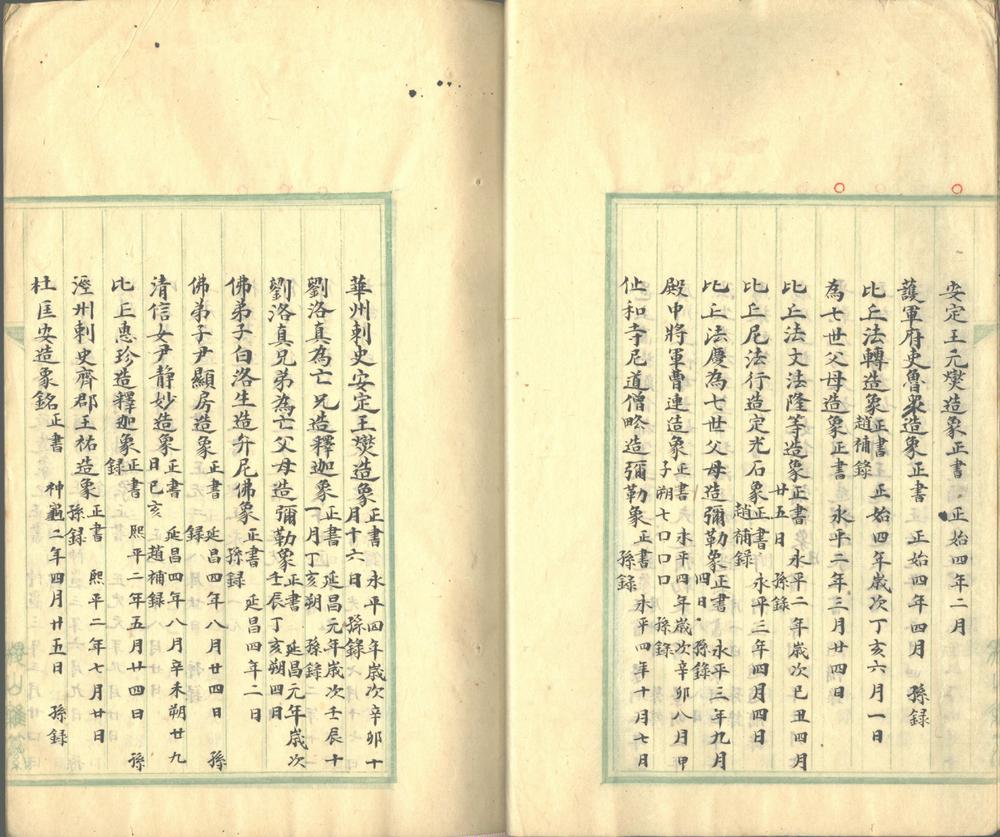 安定王元燮造象正書 正始四年二月
護軍府史魯眾造象正書 正始四年四月 孫錄
比丘法轉造象正書 正始四年歲次丁亥六月一日
趙補錄
為七世父母造象正書 永平二年三月廿四日
比丘法文法隆等造象正書 永平二年歲次己丑四月
廿五日 孫錄
比丘尼法行造定光石象正書 永平三年四月四日
趙補錄
比丘法慶為七世父母造彌勒象正書 永平三年九月
四日 孫錄
殿中將軍曹連造象正書 永平四年歲次辛卯八月甲
子朔七口口口 孫錄
仙和寺尼道僧略造彌勒象正書 永平四年十月七日
孫錄
華州刺史安定王燮造象正書 永平四年歲次辛卯十
月十六日 孫錄
劉洛真為亡兄造釋迦象正書 延昌元年歲次壬辰十
一月丁亥朔 孫錄
劉洛真兄弟為亡父母造彌勒象正書 延昌元年歲次
壬辰丁亥朔四日
佛弟子白洛生造弁尼佛象正書 延昌四年二日
孫錄
佛弟子尹顯房造象正書 延昌四年八月廿四日 孫
錄
清信女尹靜妙造象正書 延昌四年八月辛未朔廿九
日己亥 趙補錄
比丘惠珍造釋迦象正書 熙平二年五月廿四日 孫
錄
涇州刺史齊郡王祐造象正書 熙平二年七月廿日
孫錄
杜匡安造象銘正書 神龜二年四月廿五日 孫錄